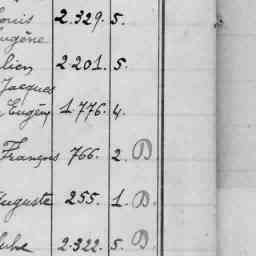 ouis 2.329. 5.
Eugène
lien 2201. 5.
Jacques
Eugène 1.776. 4.
François 766. 2. D.
uguste 255. 1. D.
2.322. 5. D